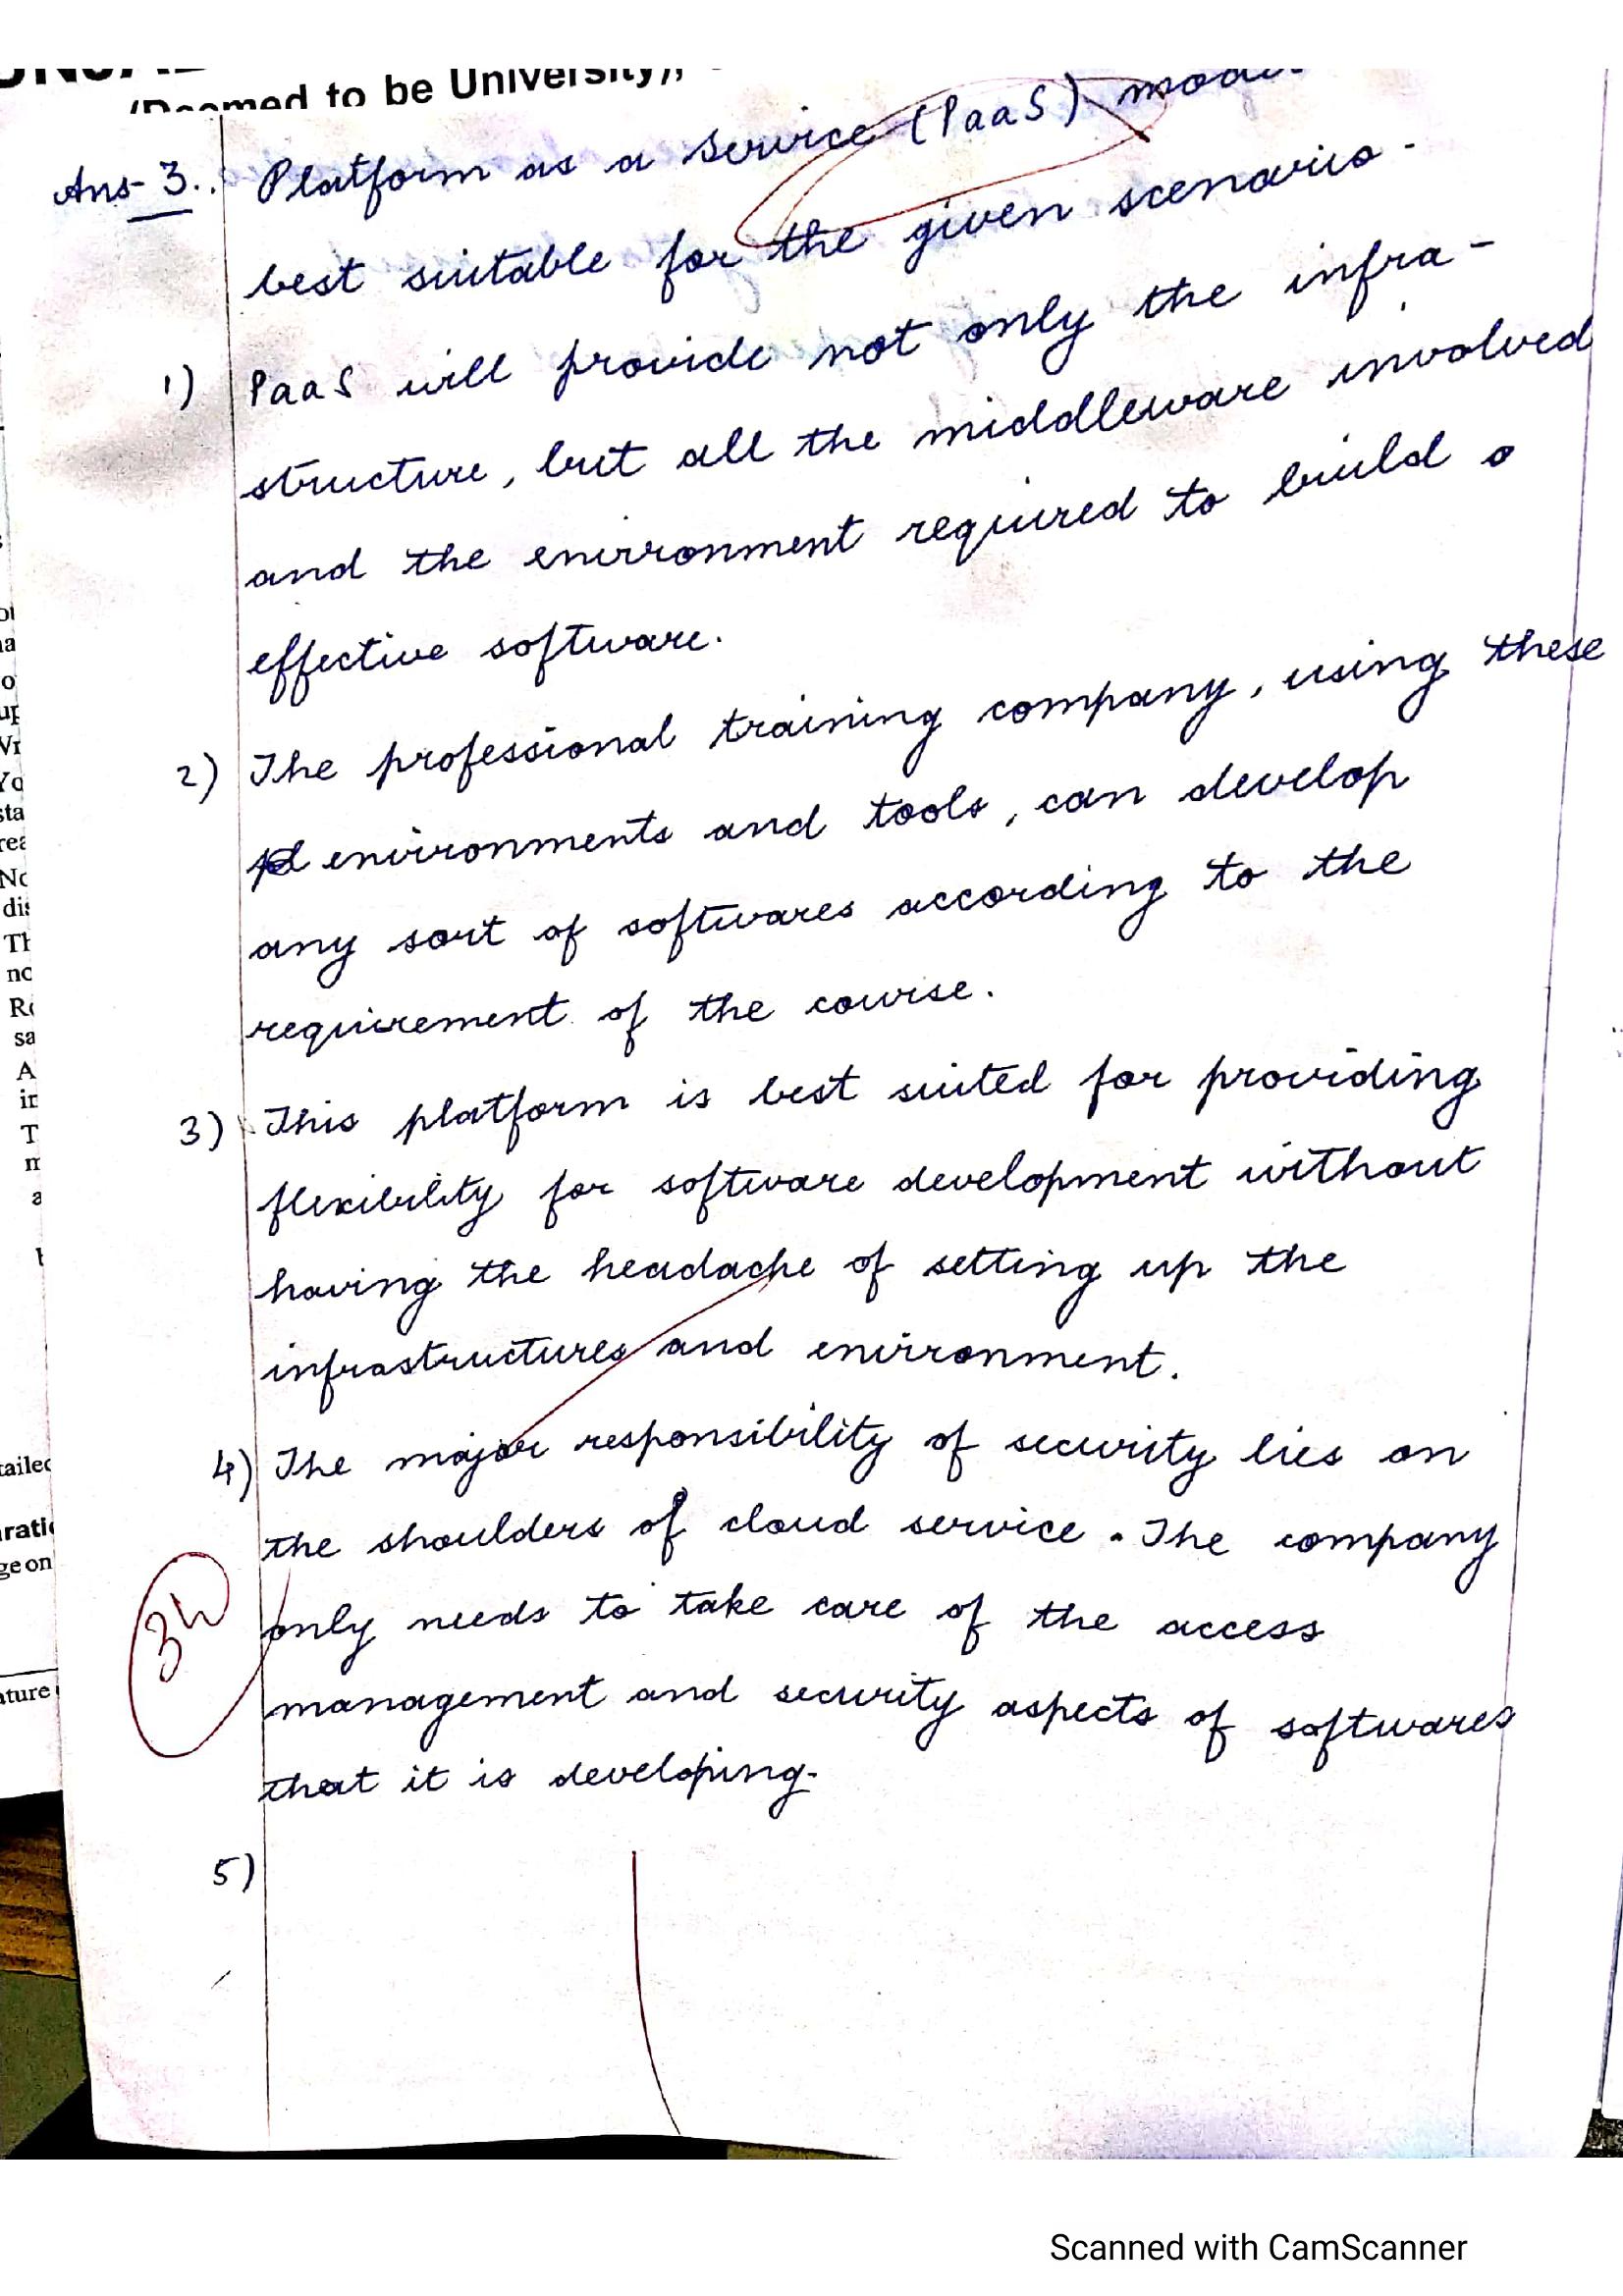 (Deemed to be University),
Ans-3. Platform as a service (PaaS)
best suitable for the given scenario.
1) PaaS will provide not only the infra-
structure, but all the middleware involved
and the environment required to build a
effective software.
2) The professional training company, using these
environments and tools, can develop
any sort of softwares according to the
requirement of the course.
3) This platform is best suited for providing
flexibility for software development without
having the headache of setting up the
infrastructures and environment.
4) The major responsibility of security lies on
the shoulders of cloud service. The company
only needs to take care of the access
management and security aspects of softwares
that it is developing.
5)
Scanned with CamScanner